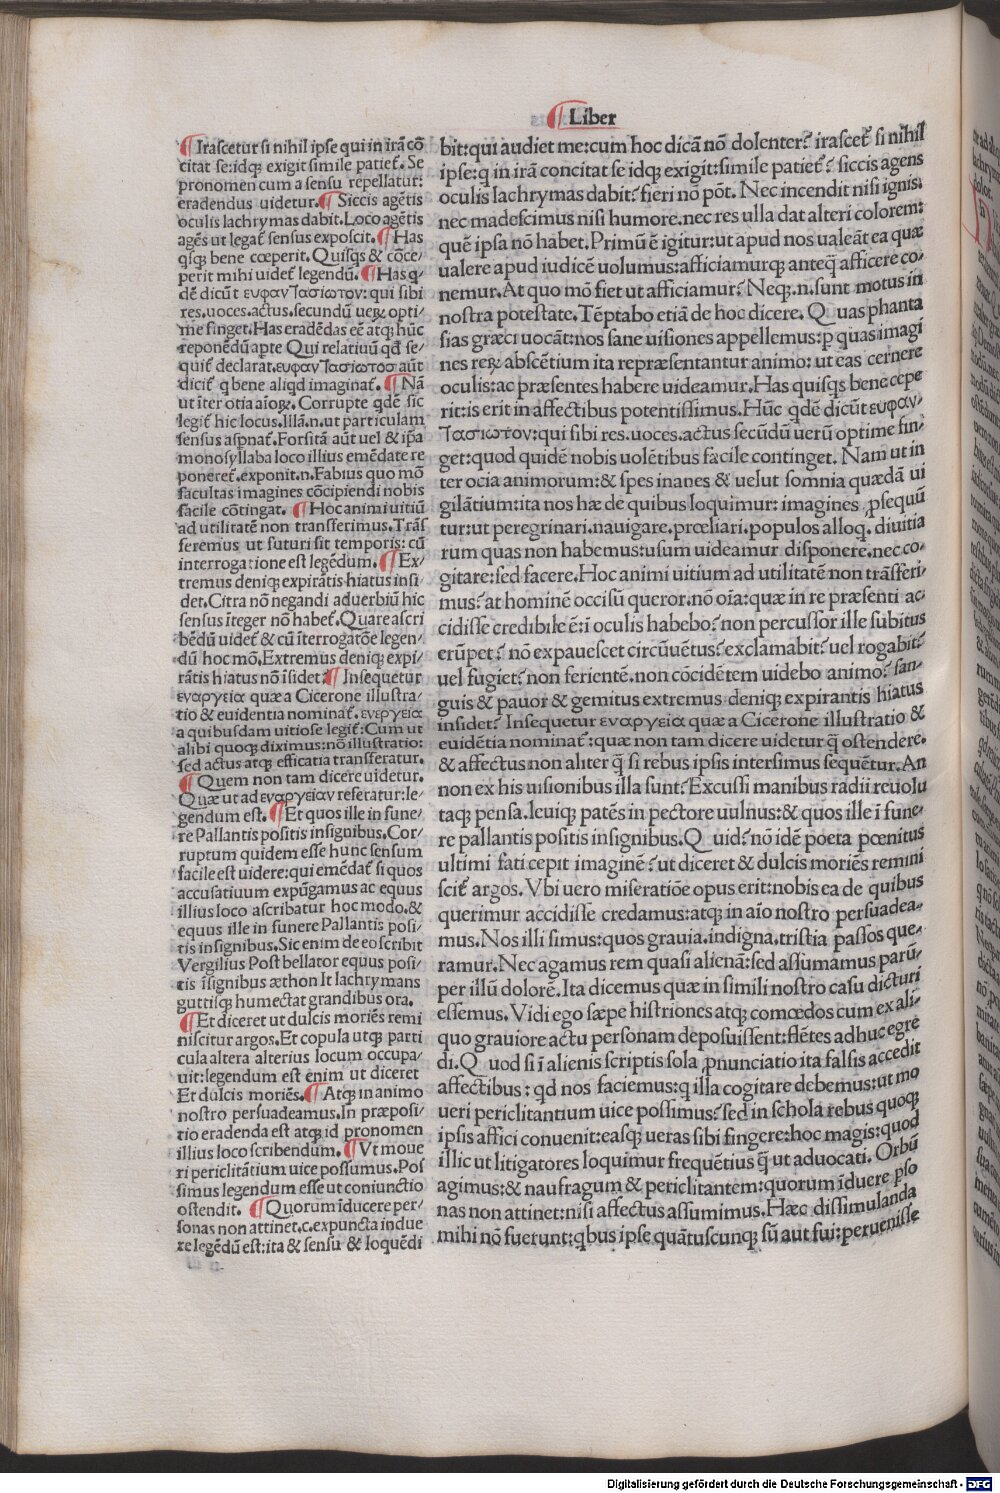 ¶ Liber
¶ Irascetur si nihil ipse qui in irã cõ
citat se:idq; exigit simile patiet̃. Se
pronomen cum a sensu repellatur:
eradendus uidetur.¶ Siccis agẽtis
oculis lachrymas dabit. Loco agẽtis
agẽs ut legat̃ sensus exposcit.¶ Has
q̃sq; bene cœperit. Quisq̃s & cõce/
perit mihi uidet̃ legendũ. ¶ Has q̃
dẽ dicũt ευφανΤασιωτον: qui sibi
res.uoces.actus.secundũ ueꝝ opti/
me finget. Has eradẽdas eẽ atq; hũc
reponẽdũ apte Qui relatiuũ qđ se/
quit̃ declarat.ευφανΤασιωτοσ aũt
dicit̃ q bene aliqd imaginat̃. ¶ Nã
ut ĩter otia aĩoꝝ. Corrupte qdẽ sic
legit̃ hic locus. Illã.n.ut particulam
sensus aspnat̃. Forsitã aũt uel & ip̃a
monosyllaba loco illius emẽdate re
poneret̃.exponit.n. Fabius quo mõ
facultas imagines cõcipiendi nobis
facile cõtingat. ¶ Hoc animi uitiũ
ad utilitatẽ non transferimus. Trãs
feremus ut futuri sit temporis: cũ
interrogatione est legẽdum. ¶ Ex/
tremus deniq; expirãtis hiatus insi/
det. Citra nõ negandi aduerbiũ hic
sensus ĩteger nõ habet̃. Quare ascri
bẽdũ uidet̃ & cũ ĩterrogatõe legen/
dũ hoc mõ. Extremus deniq; expi/
rãtis hiatus nõ ĩsidet?¶ Insequetur
εναργεια quæ a Cicerone illustra/
tio & euidentia nominat̃. ενεργεια
a quibusdam uitiose legit̃: Cum ut
alibi quoq; diximus: nõ illustratio:
sed actus atq; efficatia transferatur.
¶ Quem non tam dicere uidetur.
Quæ ut ad εναργειαν referatur: le/
gendum est. ¶ Et quos ille in fune/
re Pallantis positis insignibus. Cor/
ruptum quidem esse hunc sensum
facile est uidere: qui emẽdat̃ si quos
accusatiuum expũgamus ac equus
illius loco ascribatur hoc modo.&
equus ille in funere Pallantis posi/
tis insignibus. Sic enim de eo scribit
Vergilius Post bellator equus posi/
tis ĩsignibus æthon It lachrymans
guttisq; humectat grandibus ora.
¶ Et diceret ut dulcis moriẽs remi
niscitur argos. Et copula utq; parti
cula altera alterius locum occupa/
uit: legendum est enim ut diceret
Et dulcis moriẽs. ¶ Atq; in animo
nostro persuadeamus. In præposi/
tio eradenda est atq; id pronomen
illius loco scribendum. ¶ Vt moue
ri periclitãtium uice possumus. Pos
simus legendum esse ut coniunctio
ostendit. ¶ Quorum ĩducere per/
sonas non attinet.c.expuncta indue
re legẽdũ est: ita & sensu & loquẽdi
bit:qui audiet me:cum hoc dicã nõ dolenter? irascet̃ si nihil
ipse: q in irã concitat se idq; exigit:simile patiet̃? siccis agens
oculis lachrymas dabit? fieri nõ põt. Nec incendit nisi ignis:
nec madescimus nisi humore.nec res ulla dat alteri colorem:
quẽ ipsa nõ habet. Primũ ẽ igitur: ut apud nos ualeãt ea quæ
ualere apud iudicẽ uolumus: afficiamurq; anteq̃ afficere co/
nemur. At quo mõ fiet ut afficiamur? Neq;.n.sunt motus in
nostra potestate. Tẽptabo etiã de hoc dicere. Quas phanta
sias græci uocãt: nos sane uisiones appellemus: p quas imagi
nes reꝝ abscẽtium ita repræsentantur animo: ut eas cernere
oculis: ac præsentes habere uideamur. Has quisq̃s bene cepe
rit: is erit in affectibus potentissimus. Hũc qdẽ dicũt ευφαν/
Τασιωτον: qui sibi res.uoces.actus secũdũ uerũ optime fin/
get: quod quidẽ nobis uolẽtibus facile continget. Nam ut in
ter ocia animorum: & spes inanes & uelut somnia quædã ui
gilãtium: ita nos hæ de quibus loquimur: imagines ꝓsequũ
tur: ut peregrinari.nauigare.prœliari.populos alloq. diuitia
rum quas non habemus: usum uideamur disponere.nec co/
gitare: sed facere. Hoc animi uitium ad utilitatẽ non trãsferi/
mus? at hominẽ occisũ queror.nõ oĩa: quæ in re præsenti ac/
cidisse credibile ẽ: ĩ oculis habebo? non percussor ille subitus
erũpet? nõ expauescet circũuẽtus? exclamabit? uel rogabit?
uel fugiet? non ferientẽ.non cõcidẽtem uidebo animo? san/
guis & pauor & gemitus extremus deniq; expirantis hiatus
insidet? Insequetur εναργεια quæ a Cicerone illustratio &
euidẽtia nominat̃: quæ non tam dicere uidetur q̃ ostendere.
& affectus non aliter q̃ si rebus ipsis intersimus sequẽtur. An
non ex his uisionibus illa sunt? Excussi manibus radii reuolu
taq; pensa.leuiq; patẽs in pectore uulnus: & quos ille ĩ fune/
re pallantis positis insignibus. Quid? nõ idẽ poeta pœnitus
ultimi fati cepit imaginẽ? ut diceret & dulcis moriẽs remini
scit̃ argos. Vbi uero miseratiõe opus erit: nobis ea de quibus
querimur accidisse credamus: atq; in aĩo nostro persuadea/
mus. Nos illi simus: quos grauia.indigna.tristia passos que/
ramur. Nec agamus rem quasi alienã: sed assumamus parũ/
per illũ dolorẽ. Ita dicemus quæ in simili nostro casu dicturi
essemus. Vidi ego sæpe histriones atq; comœdos cum ex ali/
quo grauiore actu personam deposuissent: flẽtes adhuc egre
di. Quod si ĩ alienis scriptis sola ꝓnunciatio ita falsis accedit
affectibus: qd nos faciemus: q illa cogitare debemus: ut mo
ueri periclitantium uice possimus? sed in schola rebus quoq;
ipsis affici conuenit: easq; ueras sibi fingere: hoc magis: quod
illic ut litigatores loquimur frequẽtius q̃ ut aduocati. Orbũ
agimus: & naufragum & periclitantem: quorum ĩduere pso
nas non attinet: nisi affectus assumimus. Hæc dissimulanda
mihi nõ fuerunt: qbus ipse quãtuscunq; sũ aut fui: peruenisse
Digitalisierung gefördert durch die Deutsche Forschungsgemeinschaft - DFG